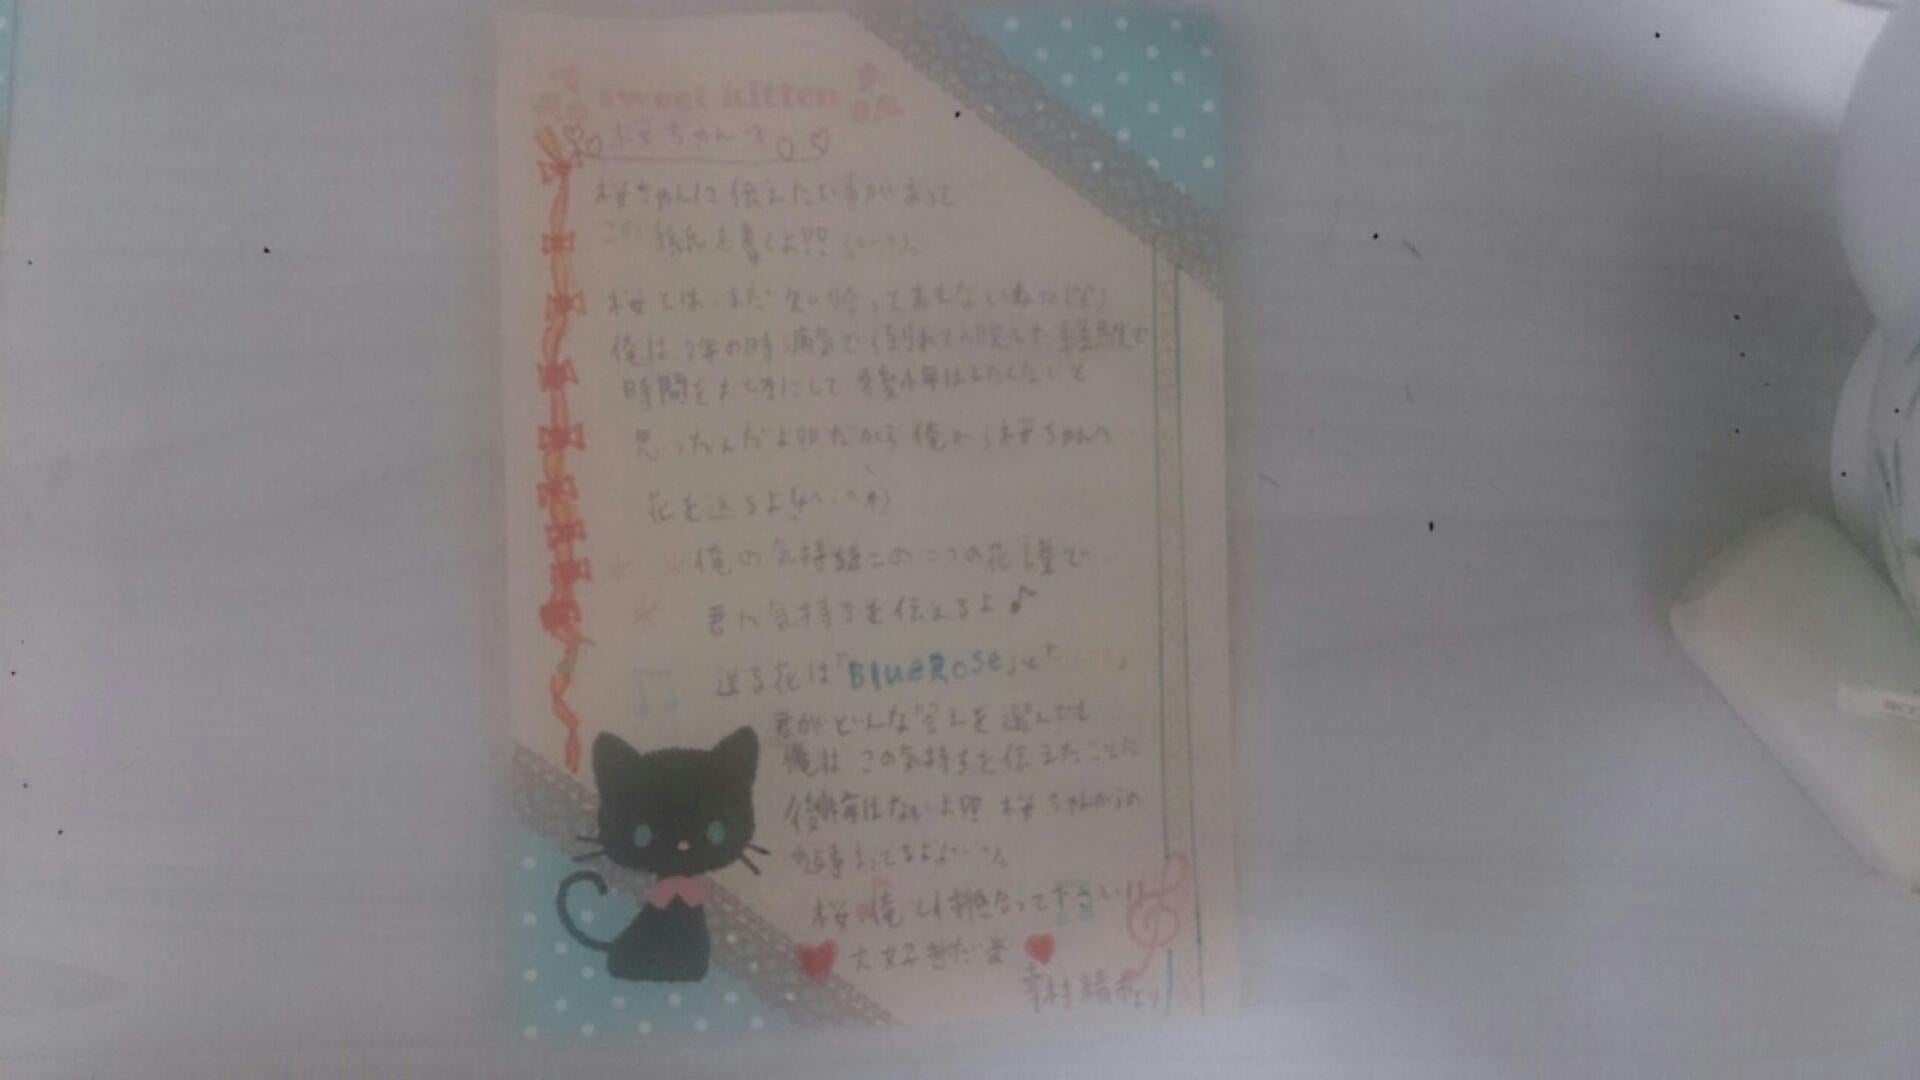 sweet kitten
桜ちゃんへ
桜ちゃんに伝えたい事があって
この紙を書くよ!!
桜とは、まだ知り合って まもないね
俺は2年の時 病気で倒れて入院した経験で
時間を大切にして 後悔はしたくないと
思ったんだよ!!だから俺から桜ちゃんへ
花を送るよ
俺の気持ちこの二つの花言葉で
君に気持ちを伝えるよ♪
送る花は「BlueRose」と「
君がどんな答えを選んでも
俺は この気持ちを伝えたことに
後悔はないよ!! 桜ちゃんからの
返事まってるよ
桜 俺と付き合って下さい!!
大好きだ
幸村精市より